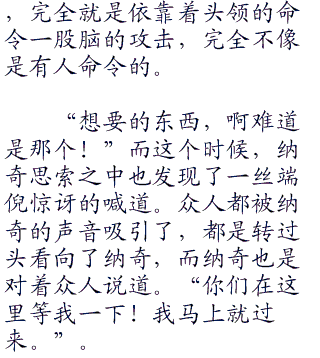 ，完全就是依靠着头领的命
令一股脑的攻击，完全不像
是有人命令的。
“想要的东西，啊难道
是那个！”而这个时候，纳
奇思索之中也发现了一丝端
倪惊讶的喊道。众人都被纳
奇的声音吸引了，都是转过
头看向了纳奇，而纳奇也是
对着众人说道。“你们在这
里等我一下！我马上就过
来。”。